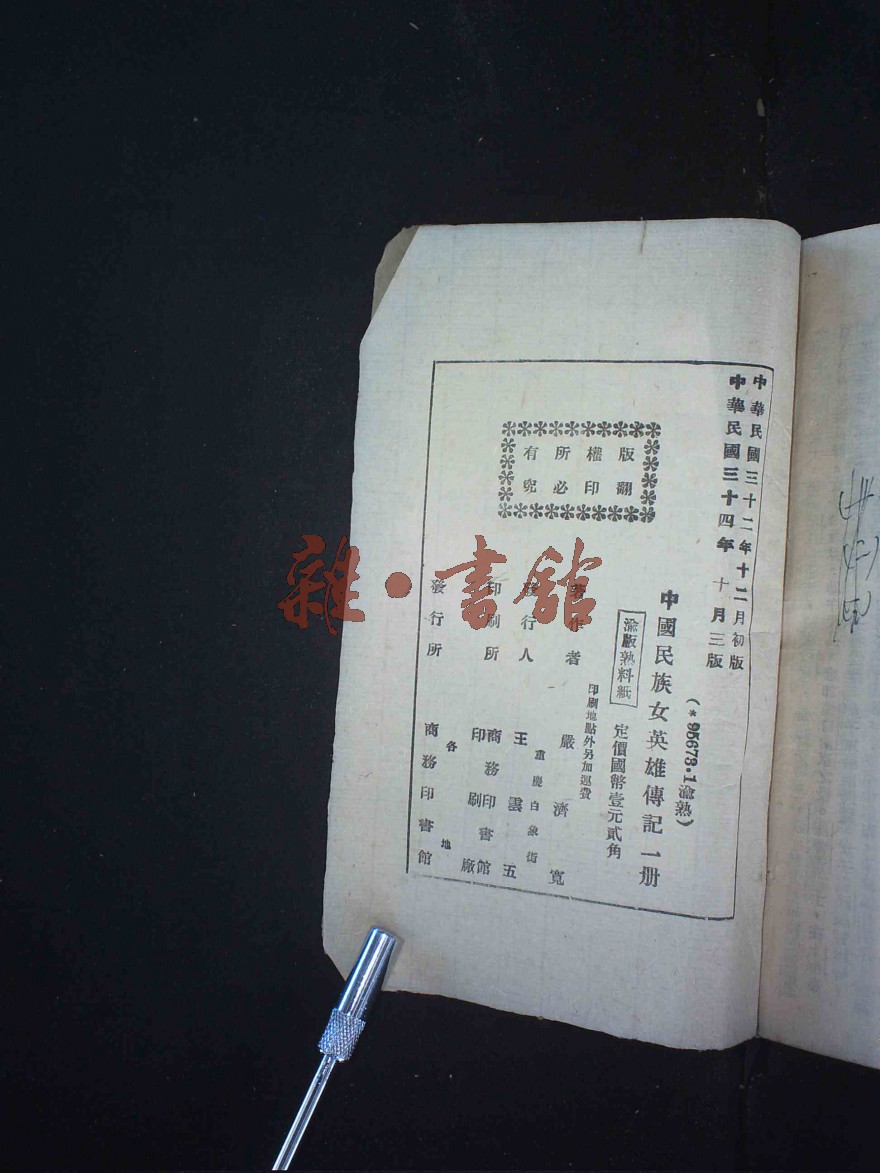 中華民國三十二年十二月初版
中華民國三十四年 十月三版
(*95673.1渝熟)
中國民族女英雄傳記一册
渝版熟料紙
定價國幣壹元貳角
印刷地點外另加運費
著作者 嚴濟寬
發行人 王雲五
重慶白象街
印刷所 商務印書館
印刷廠
發行所 各地
商務印書館
版權所有
翻印必究
雜·書館